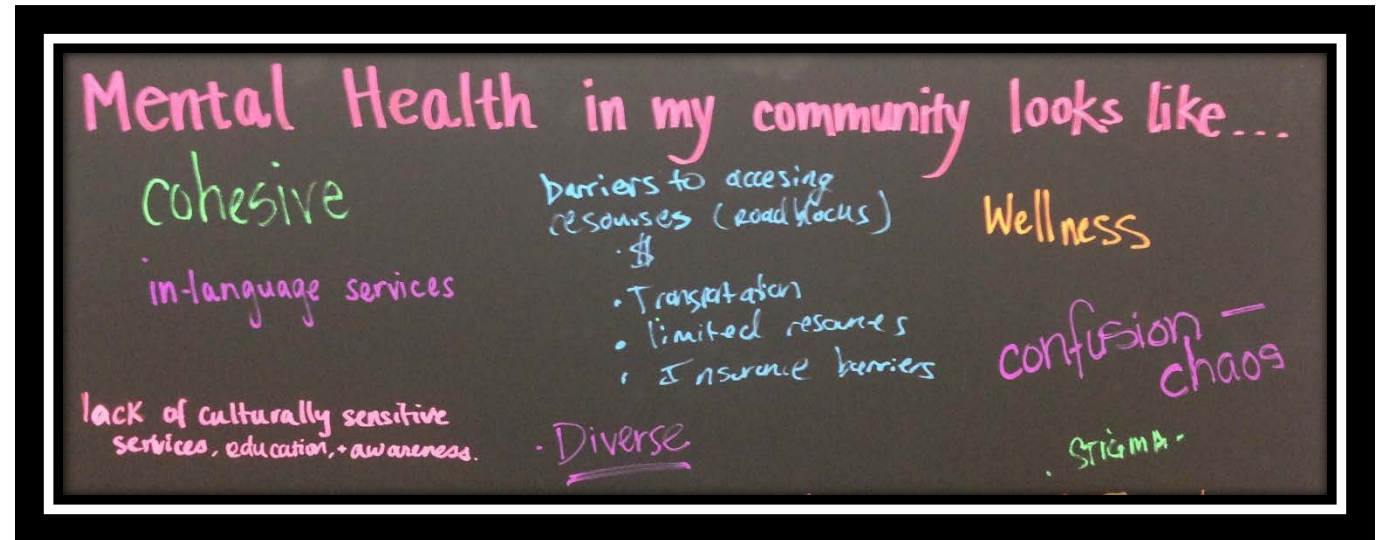 Mental Health in my community looks like....
cohesive
in-language services
lack of culturally sensitive
services, education, + awareness.
barriers to accesing
resourses (roadblocks)
· $
· Transportation
· limited resources
· Insurance barriers
· Diverse
Wellness
confusion —
chaos
· STIGMA -